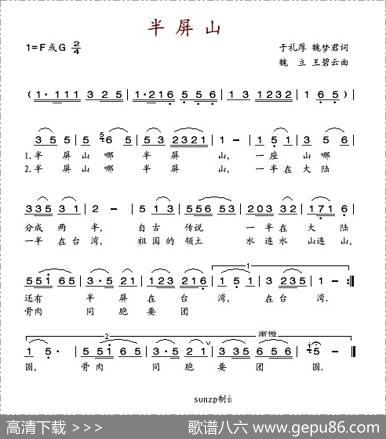 半屏山
1=F或G 2/4
于礼厚 魏梦君词
魏 立 王碧云曲
(1·111 325 | 1·216 555 | 335 23 | 1·1 1) |
353 5 | 5 465 | 53 2321 | 1 - | 1 51 |
1.半 屏 山 哪 半 屏 山, 一 座 山 哪
2.半 屏 山 哪 半 屏 山, 一 半 在 大 陆
335 31 | 2 - | 5 13 | 556 53 | 203 32 | 171 6 |
分成 两 半, 自 古 传说 一 半 在 大 陆
一半 在 台 湾, 祖 国的 领土 水 连水 山连 山,
551 65 | 335 5 | 1 5· | 0323 5 | 1 - :||
还有 半 屏 在 台 湾, 在 台 湾.
骨肉 同 胞 要 团
渐慢
1 5· | 551 65 | 335 21 | 556 55 | 1 5 - ||
圆, 骨肉 同 胞 要 团 圆.
sunzp制谱
高清下载 >>>
歌谱八六 www.gepu86.com